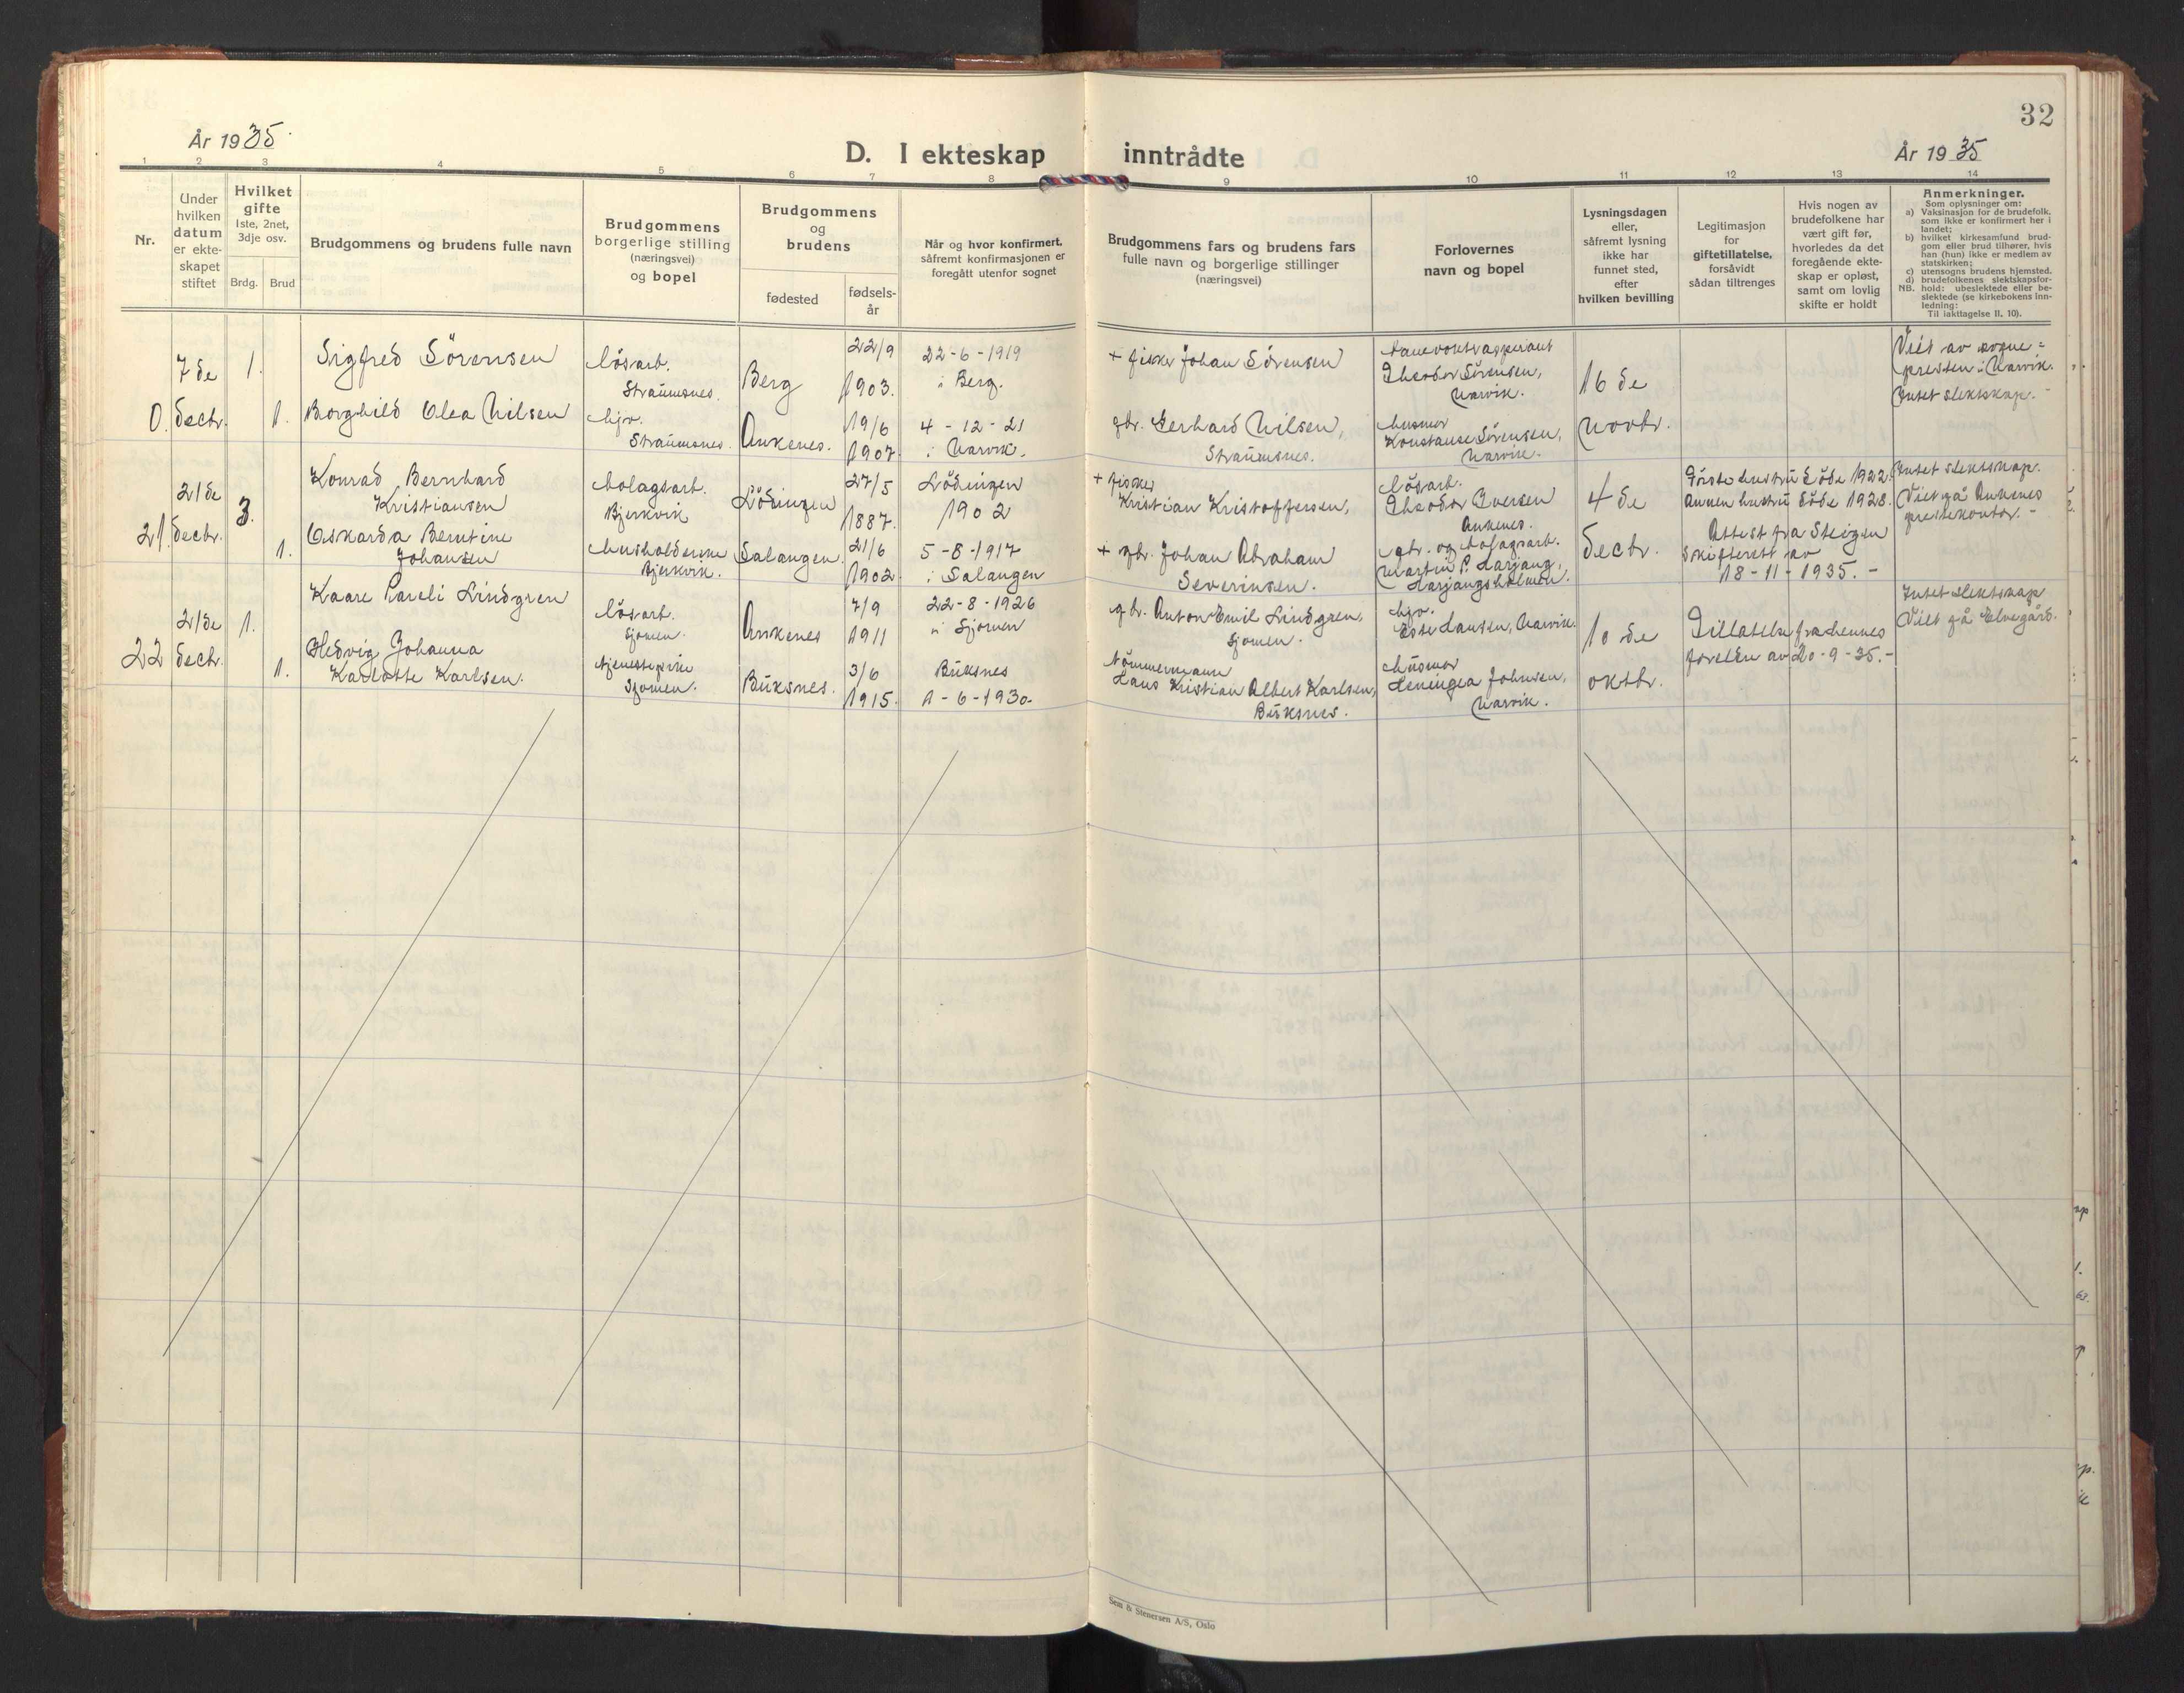 32
År 1935.
D. I ekteskap inntrådte
År 1935
1 2 3 4 5 6 7 8 9 10 11 12 13 14
Nr.
Under
hvilken
datum
er ekte-
skapet
stiftet
Hvilket
gifte
1ste, 2net,
3dje osv.
Brdg.
Brud
Brudgommens og brudens fulle navn
Brudgommens
borgerlige stilling
(næringsvei)
og bopel
Brudgommens
og
brudens
fødested
fødsels-
år
Når og hvor konfirmert,
såfremt konfirmasjonen er
foregått utenfor sognet
Brudgommens fars og brudens fars
fulle navn og borgerlige stillinger
(næringsvei)
Forlovernes
navn og bopel
Lysningsdagen
eller,
såfremt lysning
ikke har
funnet sted,
efter
hvilken bevilling
Legitimasjon
for
giftetillatelse,
forsåvidt
sådan tiltrenges
Hvis nogen av
brudefolkene har
vært gift før,
hvorledes da det
foregående ekte-
skap er opløst,
samt om lovlig
skifte er holdt
Anmerkninger.
Som oplysninger om:
a) Vaksinasjon for de brudefolk,
som ikke er konfirmert her i
landet;
b) hvilket kirkesamfund brud-
gom eller brud tilhører, hvis
han (hun) ikke er medlem av
statskirken;
c) utensogns brudens hjemsted.
d) brudefolkenes slektskapsfor-
NB. hold: ubeslektede eller be-
slektede (se kirkebokens inn-
ledning:
Til iakttagelse II, 10).
0.
7 de
dectr.
1.
Sigfred Sörensen
lösarb.
Straumsnes.
Berg
22/9
1903.
22-6-1919
i Berg.
+ fisker Johan Sörensen
Theodor Sörensen,
Narvik.
16 de
novbr.
Viet av sogne=
presten i Narvik.
Intet slektskap.
1.
Borghild Olea Nilsen
hjv.
Straumsnes.
Ankenes.
19/6
1907.
4-12-21
i Narvik.
gbr. Gerhard Nilsen,
Straumsnes.
husmor
Konstanse Sörensen,
Narvik.
21.
21de
dectr.
3.
Konrad Bernhard
Kristiansen
bolagsarb.
Bjerkvik
Lödingen
27/5
1887.
Lödingen
1902
+ fisker
Kristian Kristoffersen,
lösarb.
Theodor Iversen
Ankenes.
4 de
dectr.
Förste hustru död 1922.
Annen hustru död 1928.
Attest fra Steigen
Skifterett av
18-11-1935.-
Intet slektskap.
Viet på Ankenes
prestekontor.-
1.
Oskarda Berntine
Johansen
husholderske
Bjerkvik.
Salangen
21/6
1902.
5-8-1917
i Salangen
+ gbr. Johan Abraham
Severinsen.
gbr. og bolagsarb.
Martin P. Harjang,
Harjangsholmen.
22
21de
dectr.
1.
Kaare Pareli Lindgren
lösarb.
Sjomen.
Ankenes
7/9
1911
22-8-1926
i Sjomen
gbr. Anton Emil Lindgren,
Sjomen.
hjv.
Hansen, Narvik.
10 de
oktbr.
Tillatelse fra hennes
foreldre av 20-9-35.-
Intet slektskap
Viet på Elvegård.
1.
Hedvig Johanna
Karlotte Karlsen.
tjenestepike
Sjomen.
Buksnes.
3/6
1915.
Buksnes
1-6-1930.
tömmermann
Hans Kristian Albert Karlsen,
Buksnes.
husmor
Heningea Johnsen,
Narvik.
Sem & Stenersen A/S, Oslo